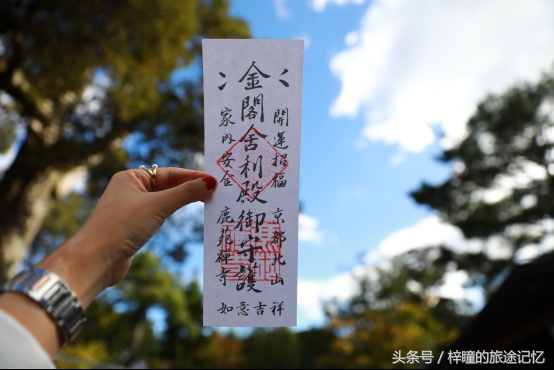 開運招福 京都北山
金閣舍利殿御守護
家内安全 鹿苑禅寺
如意吉祥
头条号 / 梓瞳的旅途记忆